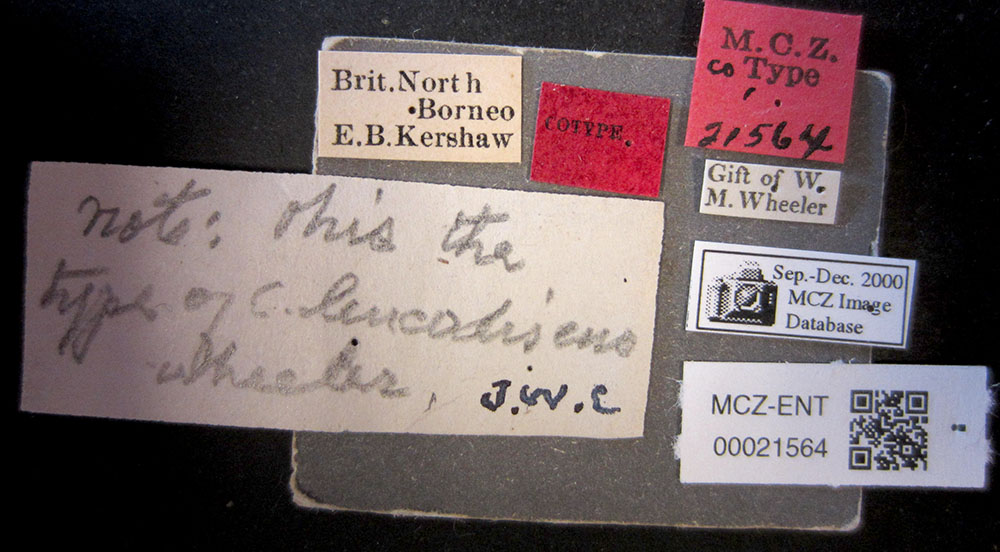 Brit.North
Borneo
E.B.Kershaw
COTYPE.
M.C.Z.
co Type
21564
Gift of W.
M. Wheeler
note: this the
type of C. leucodiscus
Wheeler,
J.W.C
Sep.-Dec. 2000
MCZ Image
Database
MCZ-ENT
00021564